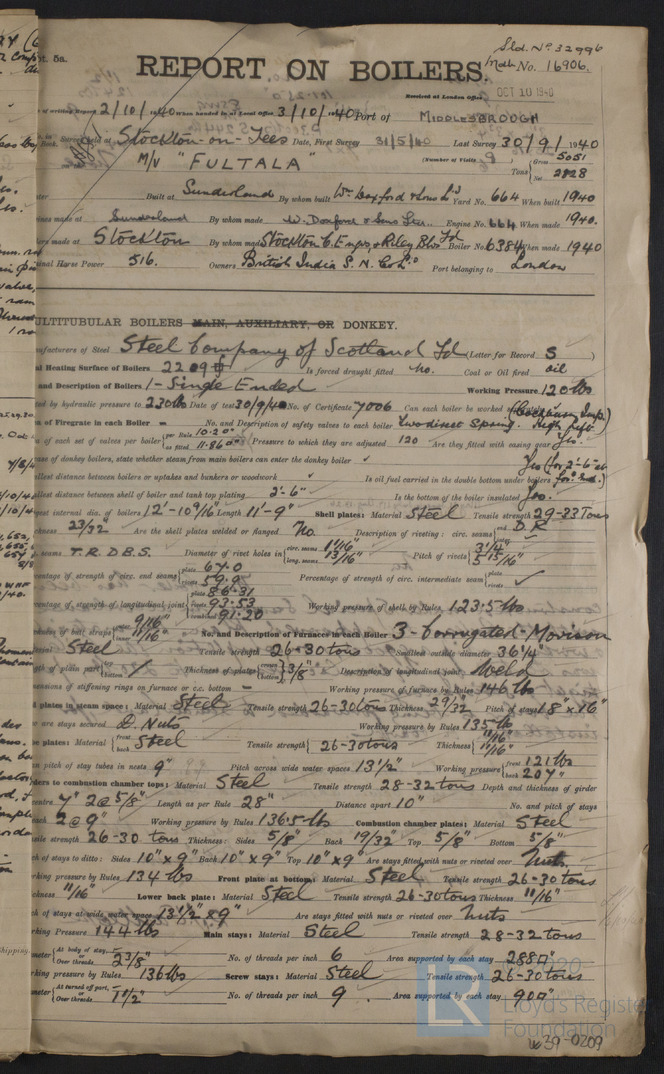 Sld. No. 32996
rt. 5a.
REPORT ON BOILERS.
Mdb. No. 16906.
Received at London Office OCT 10 1940
2/10/1940 When handed in at Local Office 3/10/1940 Port of MIDDLESBROUGH
Survey held at Stockton-on-Tees Date, First Survey 31/5/40 Last Survey 30/9/1940
M/V "FULTALA" (Number of Visits 9) Tons Gross 5051 Net 2828
Built at Sunderland By whom built Wm Doxford & Sons Ld Yard No. 664 When built 1940
made at Sunderland By whom made W. Doxford & Sons Ltd. Engine No. 664 When made 1940.
made at Stockton By whom made Stockton C.E. & Riley Blrs Ld Boiler No. 6384 When made 1940
Horse Power 516. Owners British India S. N. Co Ld Port belonging to London
MULTITUBULAR BOILERS MAIN, AUXILIARY, OR DONKEY.
manufacturers of Steel Steel Company of Scotland Ld (Letter for Record S)
Heating Surface of Boilers 2209 Is forced draught fitted No. Coal or Oil fired oil
and Description of Boilers 1-Single Ended Working Pressure 120 lbs
by hydraulic pressure to 230 lbs Date of test 30/9/40 No. of Certificate 7006 Can each boiler be worked
of Firegrate in each Boiler - No. and Description of safety valves to each boiler Two direct Spring. High lift
of each set of valves per boiler per Rule 10.20 as fitted 11.86 Pressure to which they are adjusted 120 Are they fitted with easing gear Yes.
case of donkey boilers, state whether steam from main boilers can enter the donkey boiler
smallest distance between boilers or uptakes and bunkers or woodwork Is oil fuel carried in the double bottom under boilers
smallest distance between shell of boiler and tank top plating 2'-6" Is the bottom of the boiler insulated Yes.
largest internal dia. of boilers 12'-10 9/16" Length 11'-9" Shell plates: Material Steel Tensile strength 29-33 Tons
thickness 23/32" Are the shell plates welded or flanged No Description of riveting: circ. seams end D.R
seams T.R.D.B.S. Diameter of rivet holes in circ. seams 1 1/16" long. seams 13/16" Pitch of rivets 3 1/4 5 15/16"
percentage of strength of circ. end seams plate 67.0 rivets 59.9 Percentage of strength of circ. intermediate seam plate rivets
percentage of strength of longitudinal joint plate 86.31 rivets 93.53 combined 91.20 Working pressure of shell by Rules 123.5 lbs
thickness of butt straps 9/16" 11/16" No. and Description of Furnaces in each Boiler 3-Corrugated-Morison
Steel Tensile strength 26-30 tons Smallest outside diameter 36 1/4"
length of plain part top bottom Thickness of plates crown bottom 3/8" Description of longitudinal joint Weld
dimensions of stiffening rings on furnace or c.c. bottom - Working pressure of furnace by Rules 146 lbs
plates in steam space: Material Steel Tensile strength 26-30 tons Thickness 29/32" Pitch of stays 18" x 16"
are stays secured D. Nuts Working pressure by Rules 135 lb
plates: Material front back Steel Tensile strength 26-30 tons Thickness 11/16" 11/16"
pitch of stay tubes in nests 9" Pitch across wide water spaces 13 1/2" Working pressure front 121 lbs back 207 "
Girders to combustion chamber tops: Material Steel Tensile strength 28-32 tons Depth and thickness of girder
centre 7" 2@5/8" Length as per Rule 28" Distance apart 10" No. and pitch of stays
2@9" Working pressure by Rules 136.5 lb Combustion chamber plates: Material Steel
Tensile strength 26-30 tons Thickness: Sides 5/8" Back 19/32" Top 5/8" Bottom 5/8"
Pitch of stays to ditto: Sides 10" x 9" Back 10" x 9" Top 10" x 9" Are stays fitted with nuts or riveted over Nuts.
Working pressure by Rules 134 lbs Front plate at bottom: Material Steel Tensile strength 26-30 tons
thickness 11/16" Lower back plate: Material Steel Tensile strength 26-30 tons Thickness 11/16"
Pitch of stays at wide water space 13 1/2" x 9" Are stays fitted with nuts or riveted over Nuts
Working Pressure 144 lbs Main stays: Material Steel Tensile strength 28-32 tons
At body of stay, or Over threads 2 3/8" No. of threads per inch 6 Area supported by each stay 288
Working pressure by Rules 136 lbs Screw stays: Material Steel Tensile strength 26-30 tons
At turned off part, or Over threads 1 1/2" No. of threads per inch 9. Area supported by each stay 90
© 2020
Lloyd's Register
Foundation
W39-0209